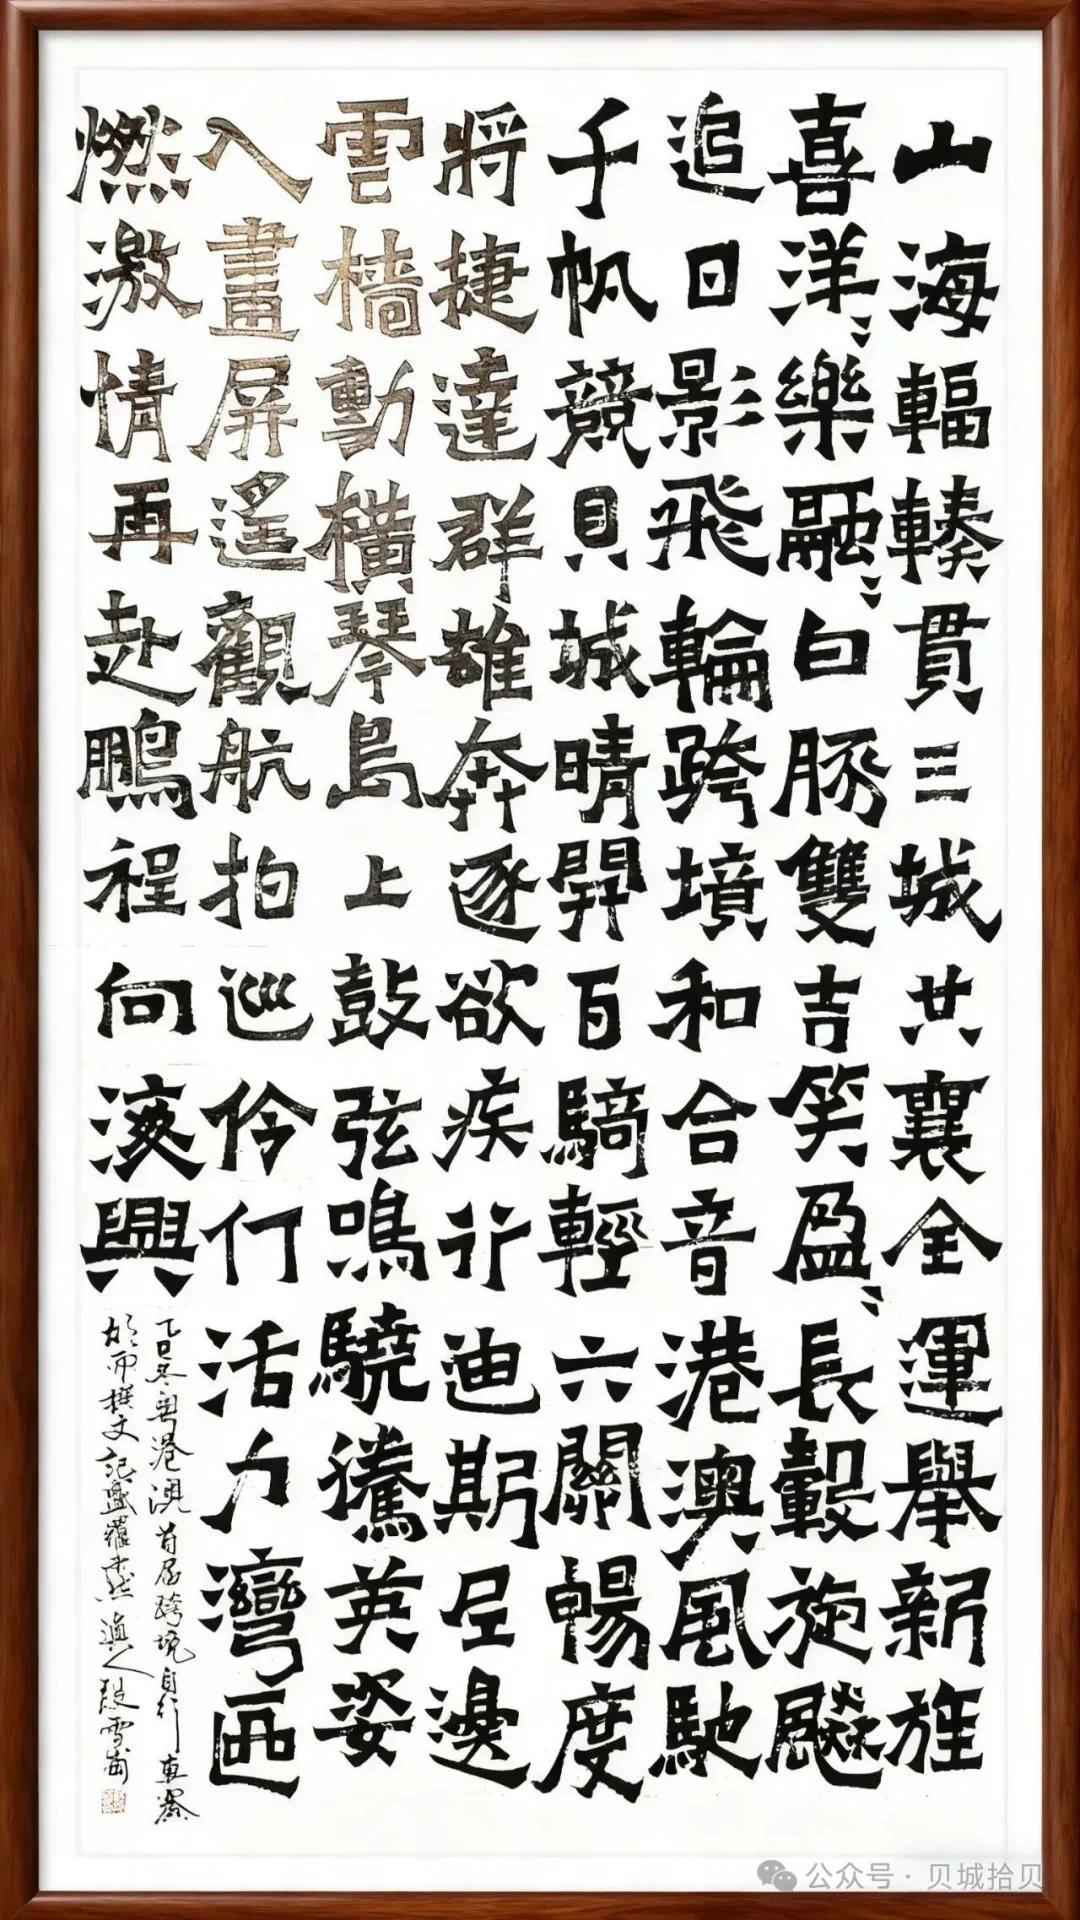 山海輻輳貫三城共襄全運舉新旌
喜洋〻樂融〻白豚雙吉笑盈〻長轂旋飈
追日影飛輪跨境和合音港澳風馳
千帆競貝城晴開百騎輕六關暢度
將捷達群雄奔逐欲疾行迪斯尼邊
雲檣動橫琴島上鼓弦鳴驍騰英姿
入畫屏遙觀航拍巡伶仃活力灣區
燃激情再赴鵬程向滾興
乙巳冬粵港澳首屆跨境自行車賽
雨撰文記盛 滇人段雪
公众号·贝城拾贝